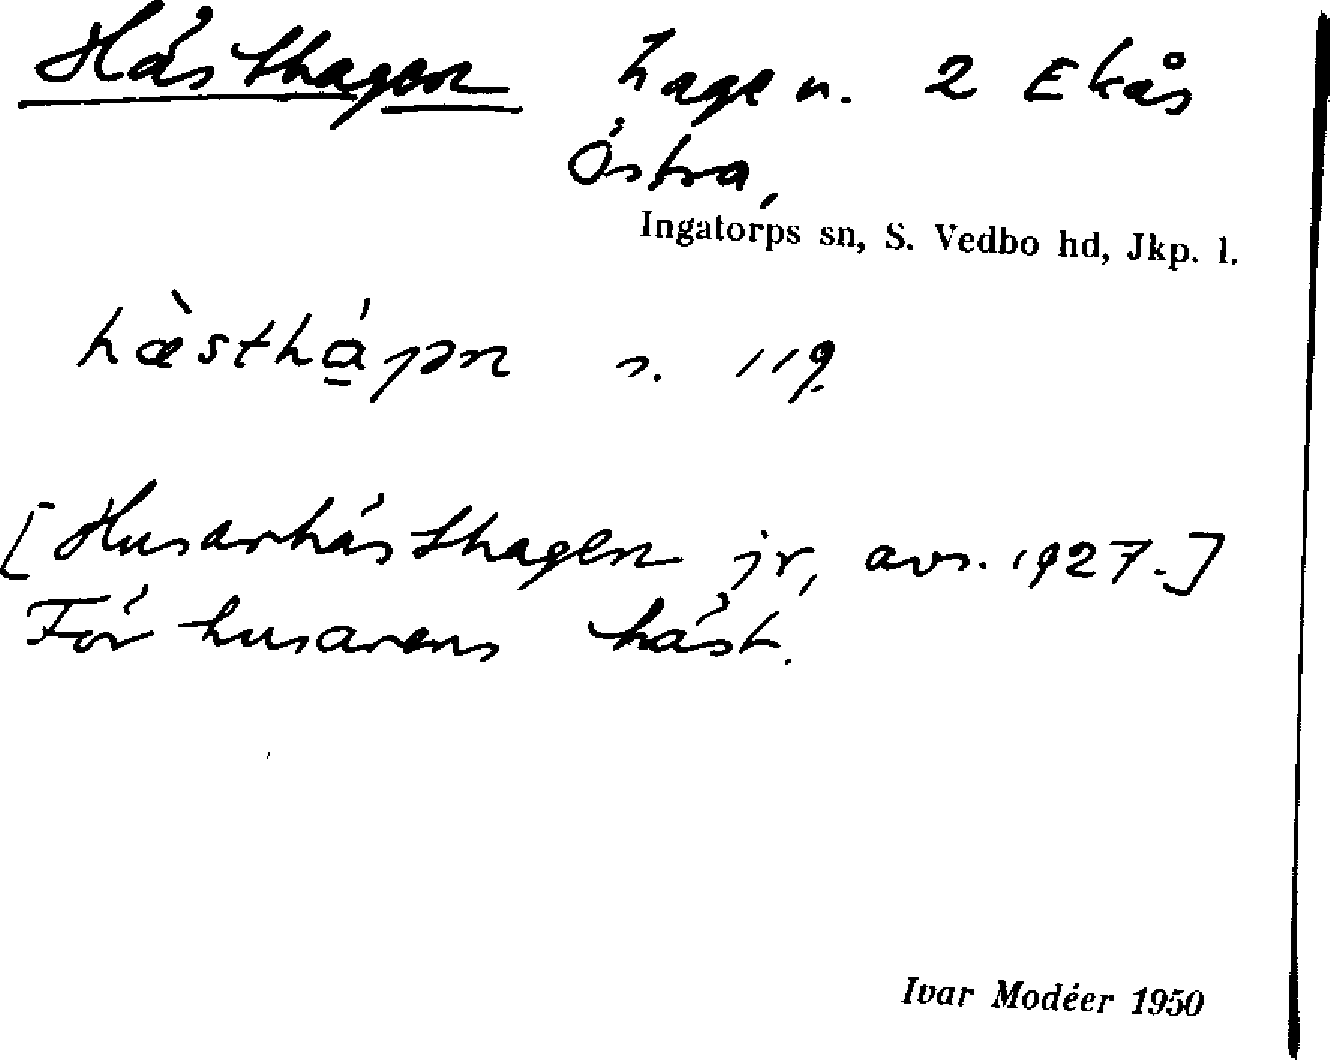 Hästhagen hage n. 2 Ekås
Östra,
Ingatorps sn, S. Vedbo hd, Jkp. l.
hæ̀sthá̠gən s. 119
[Husarhästhagen jr, avs. 1927.]
För husarens häst.
Ivar Modéer 1950